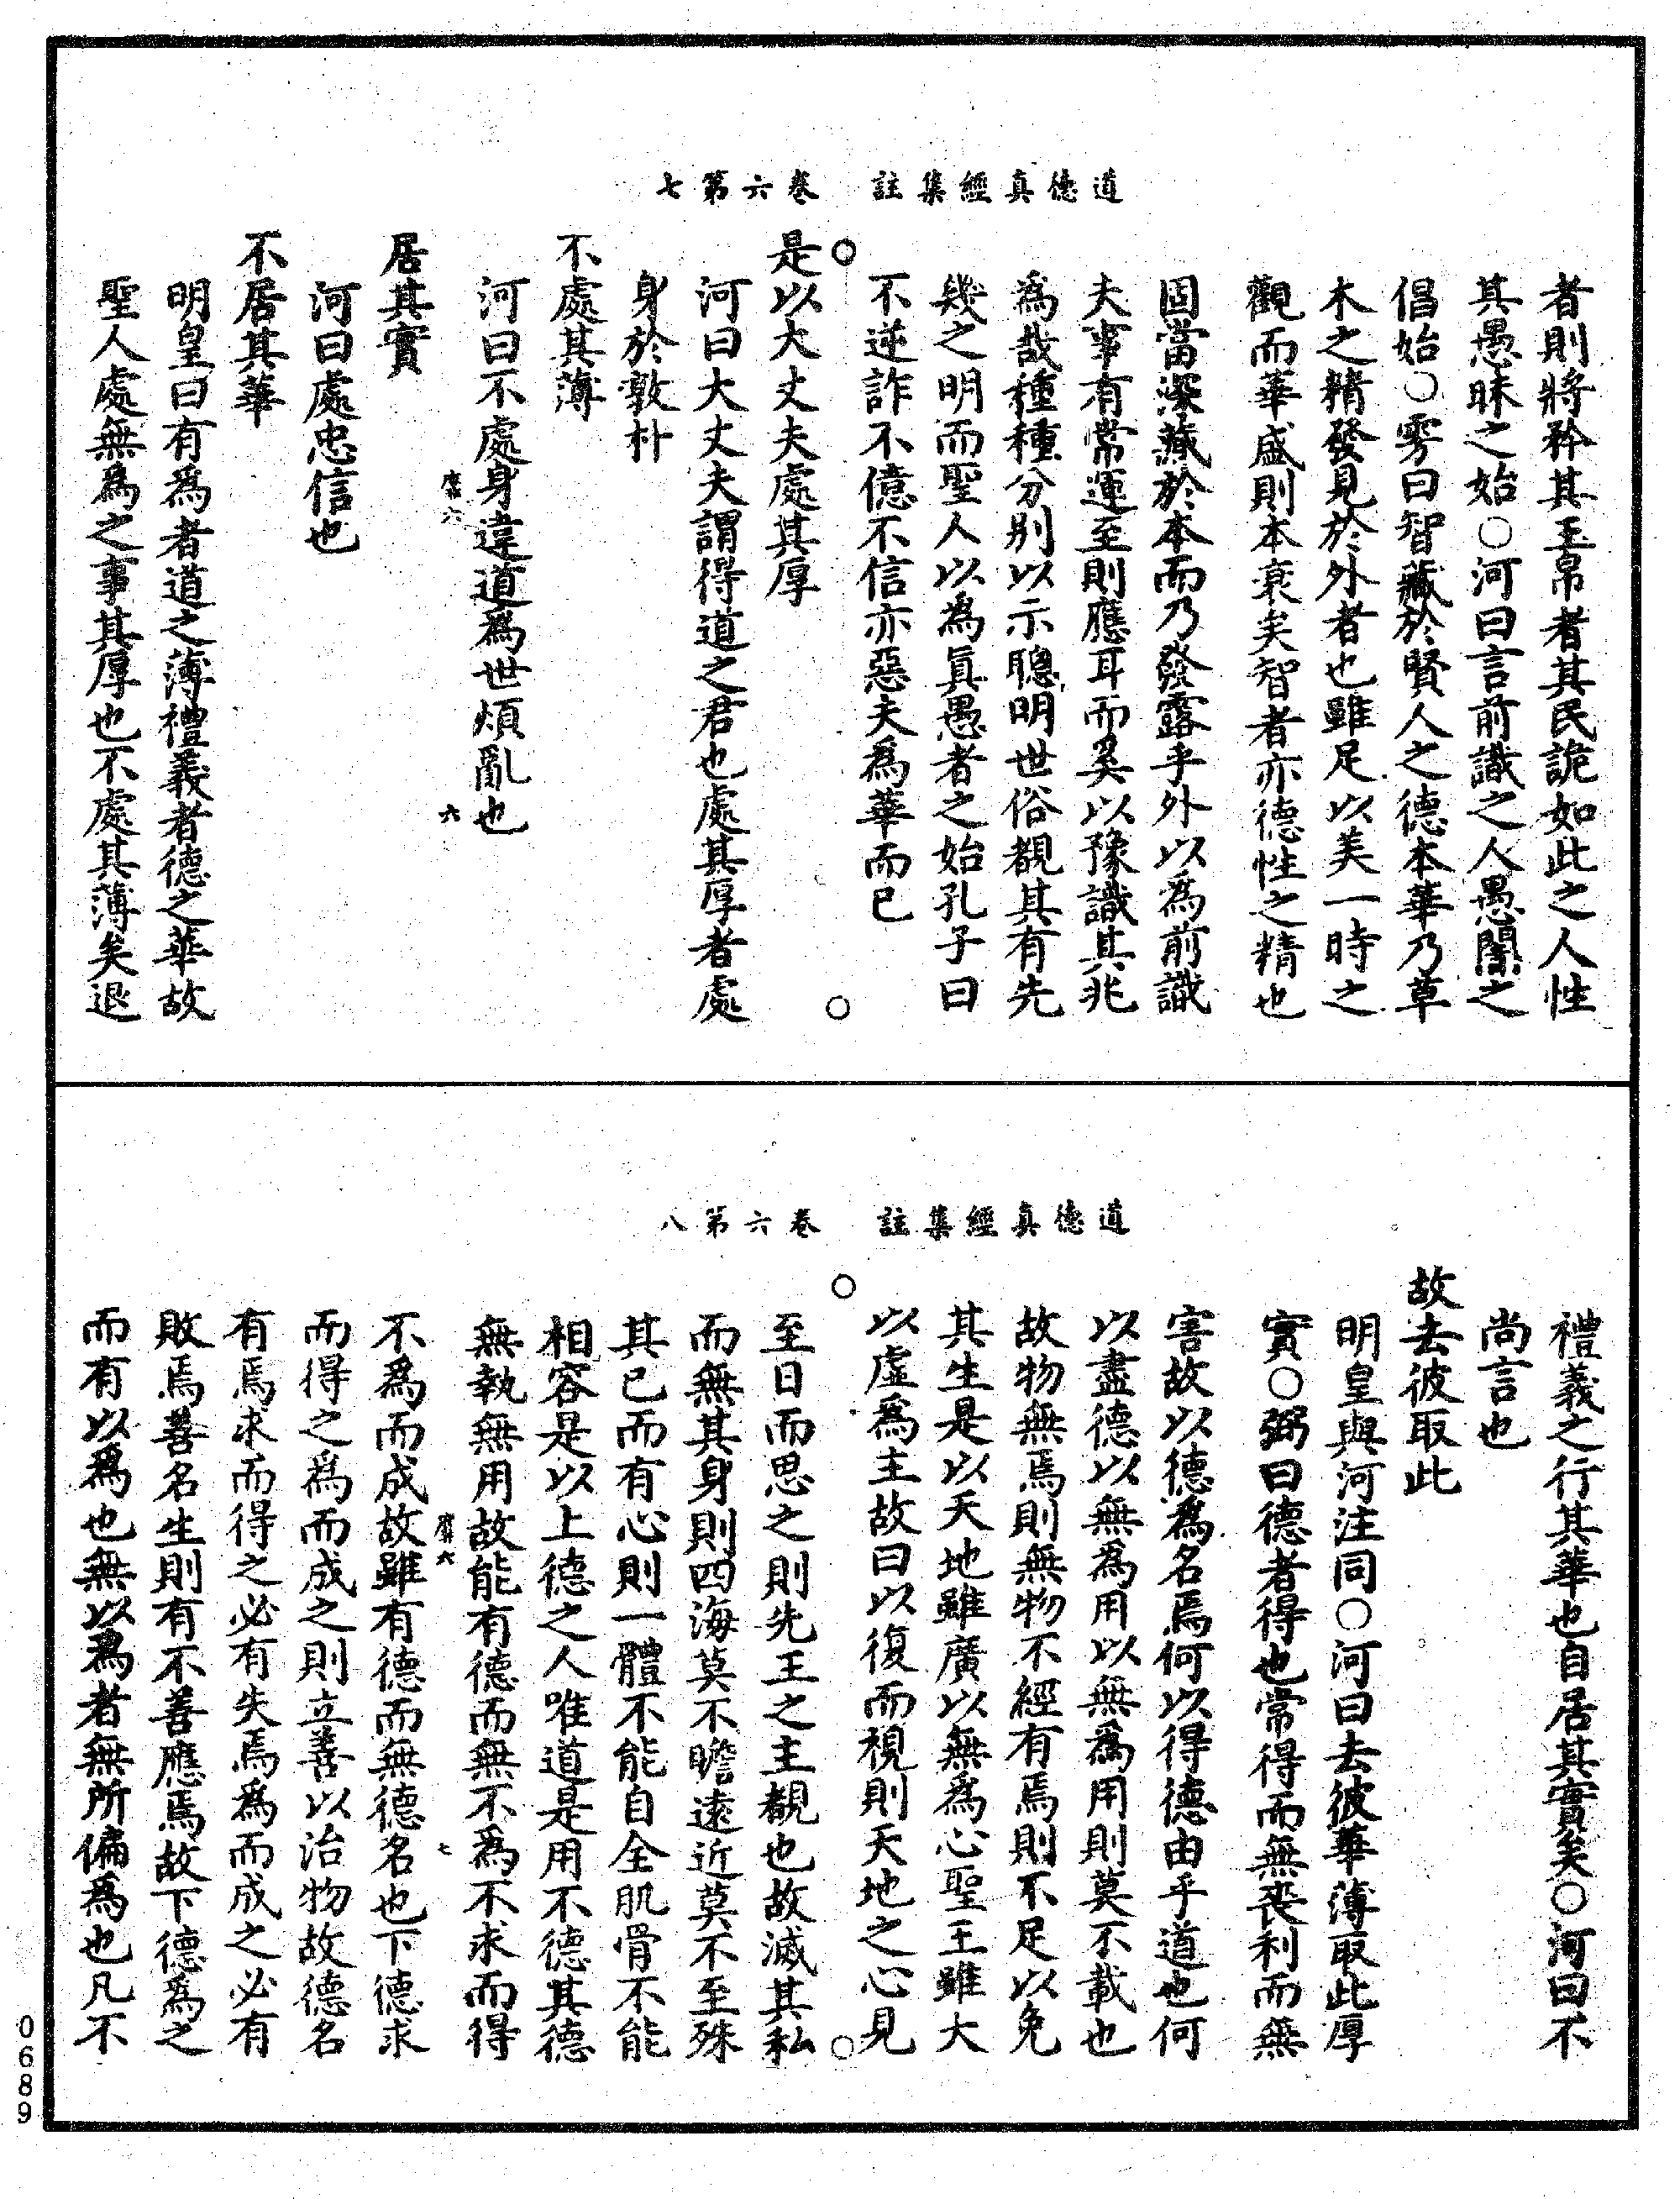 道德真經集註　卷六第七
者則將矜其玉帛者其民詭如此之人性
其愚昧之始○河曰言前識之人愚闇之
倡始○雱曰智藏於賢人之德本華乃草
木之精發見於外者也雖足以美一時之
觀而華盛則本衰矣智者亦德性之精也
固當深藏於本而乃發露乎外以為前識
夫事有常運至則應耳而奚以豫識其兆
為哉種種分別以示聰明世俗覩其有先
幾之明而聖人以為真愚者之始孔子曰
不逆詐不億不信亦惡夫為華而已
是以大丈夫處其厚
河曰大丈夫謂得道之君也處其厚者處
身於敦朴
不處其薄
河曰不處身違道為世煩亂也
六
居其實
河曰處忠信也
不居其華
明皇曰有為者道之薄禮義者德之華故
聖人處無為之事其厚也不處其薄矣退
道德真經集註　卷六第八
禮義之行其華也自居其實矣○河曰不
尚言也
故去彼取此
明皇與河注同○河曰去彼華薄取此厚
實○弼曰德者得也常得而無喪利而無
害故以德為名焉何以得德由乎道也何
以盡德以無為用以無為用則莫不載也
故物無焉則無物不經有焉則不足以免
其生是以天地雖廣以無為心聖王雖大
以虛為主故曰以復而視則天地之心見
至日而思之則先王之主覩也故滅其私
而無其身則四海莫不瞻遠近莫不至殊
其已而有心則一體不能自全肌骨不能
相容是以上德之人唯道是用不德其德
無執無用故能有德而無不為不求而得
七
不為而成故雖有德而無德名也下德求
而得之為而成之則立善以治物故德名
有焉求而得之必有失焉為而成之必有
敗焉善名生則有不善應焉故下德為之
而有以為也無以為者無所偏為也凡不
0689